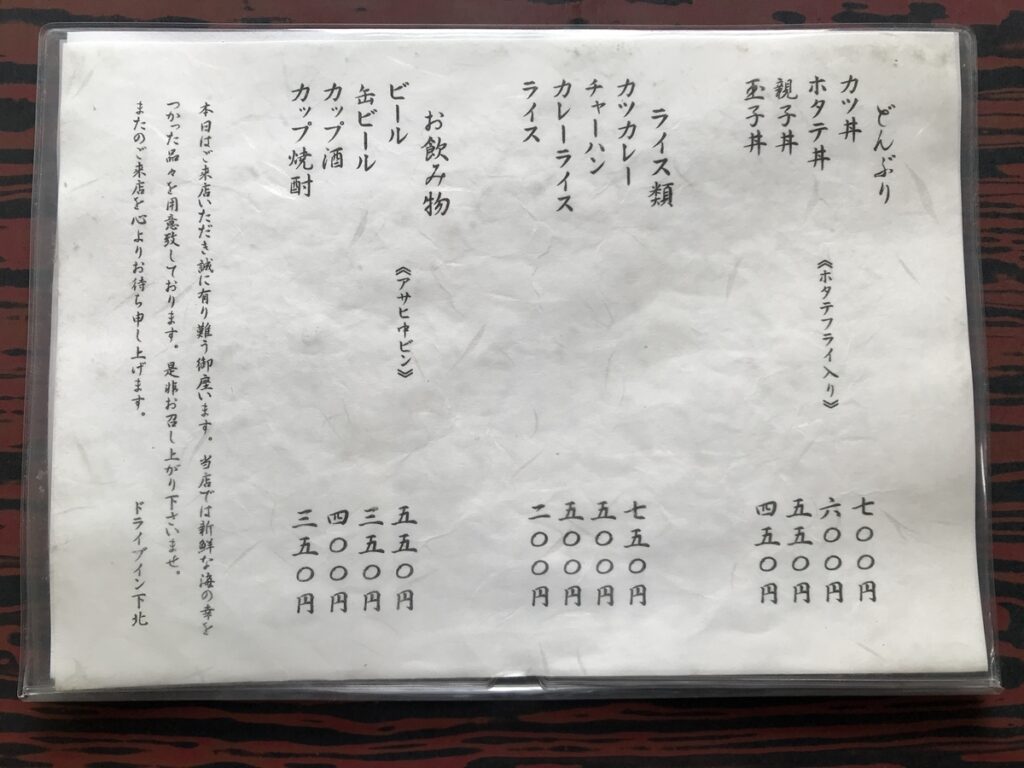 どんぶり
カツ丼 七〇〇円
ホタテ丼 《ホタテフライ入り》 六〇〇円
親子丼 五五〇円
玉子丼 四五〇円
ライス類
カツカレー 七五〇円
チャーハン 五〇〇円
カレーライス 五〇〇円
ライス 二〇〇円
お飲み物
ビール 《アサヒ中ビン》 五五〇円
缶ビール 三五〇円
カップ酒 四〇〇円
カップ焼酎 三五〇円
本日はご来店いただき誠に有り難う御座います。当店では新鮮な海の幸を
つかった品々を用意致しております。是非お召し上がり下さいませ。
またのご来店を心よりお待ち申し上げます。 ドライブイン下北